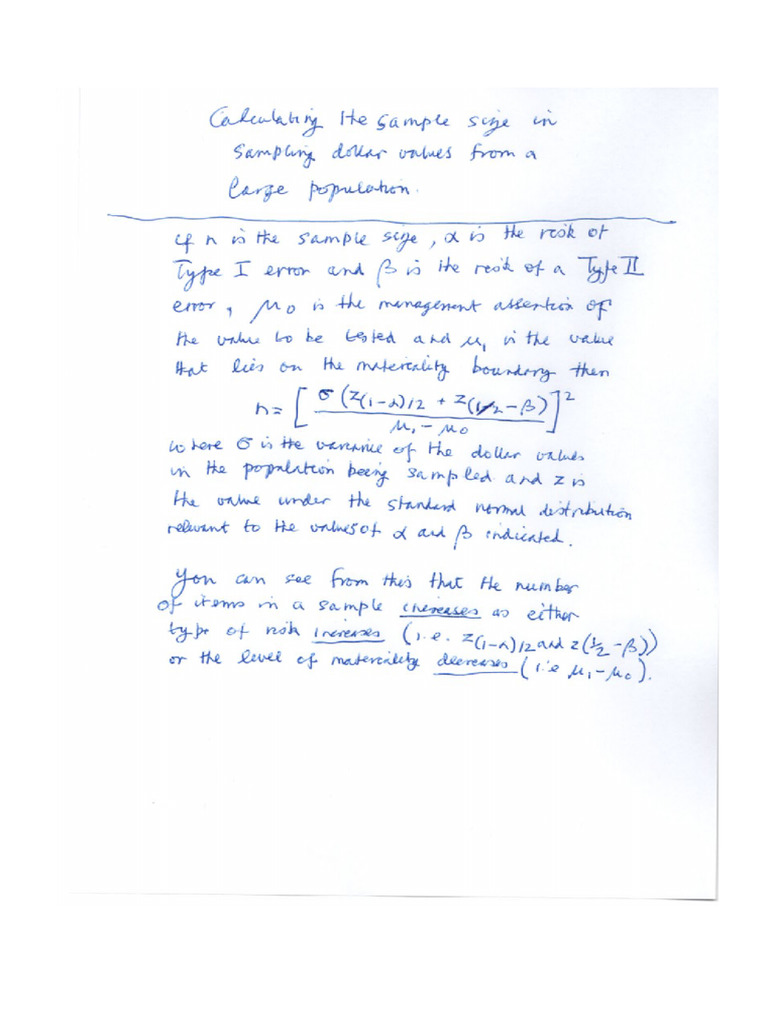 Calculating the sample size in
sampling dollar values from a
large population.
if n is the sample size, α is the risk of
Type I error and β is the risk of a Type II
error, μ0 is the management assertion of
the value to be tested and μ₁ is the value
that lies on the materiality boundary then
n = [ σ (Z(1-α)/2 + Z(1/2 - β) / μ₁ - μ0 ]²
where σ is the variance of the dollar values
in the population being sampled and z is
the value under the standard normal distribution
relevant to the values of α and β indicated.
You can see from this that the number
of items in a sample increases as either
type of risk increases (i.e. Z(1-α)/2 and z(½-β))
or the level of materiality decreases (i.e μ₁-μ₀).